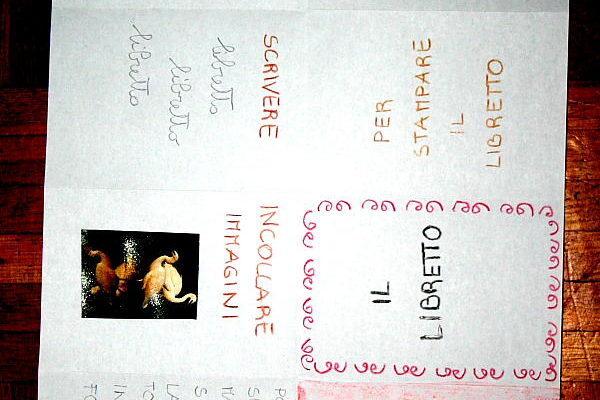 SCRIVERE
libretto
libretto
libretto
INCOLLARE
IMMAGINI
PER
STAMPARE
IL
LIBRETTO
IL
LIBRETTO